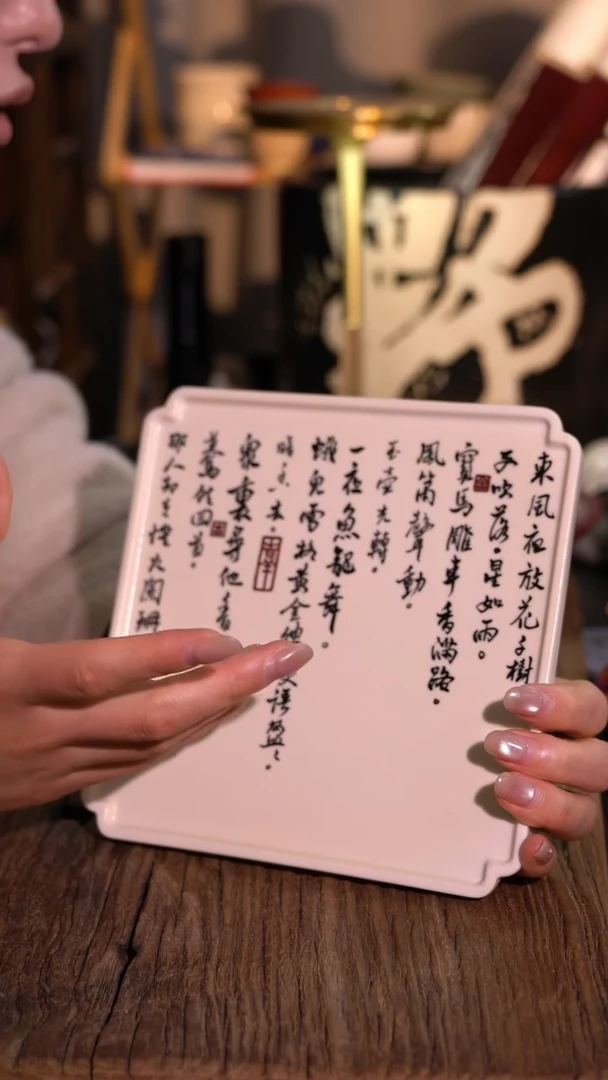 東風夜放花千樹
更吹落。星如雨。
寶馬雕車香滿路。
鳳簫聲動。
玉壺光轉。
一夜魚龍舞。
蛾兒雪柳黃金縷笑語盈〻。
暗香去。
眾裏尋他千
驀然回首。
那人却在燈火闌珊